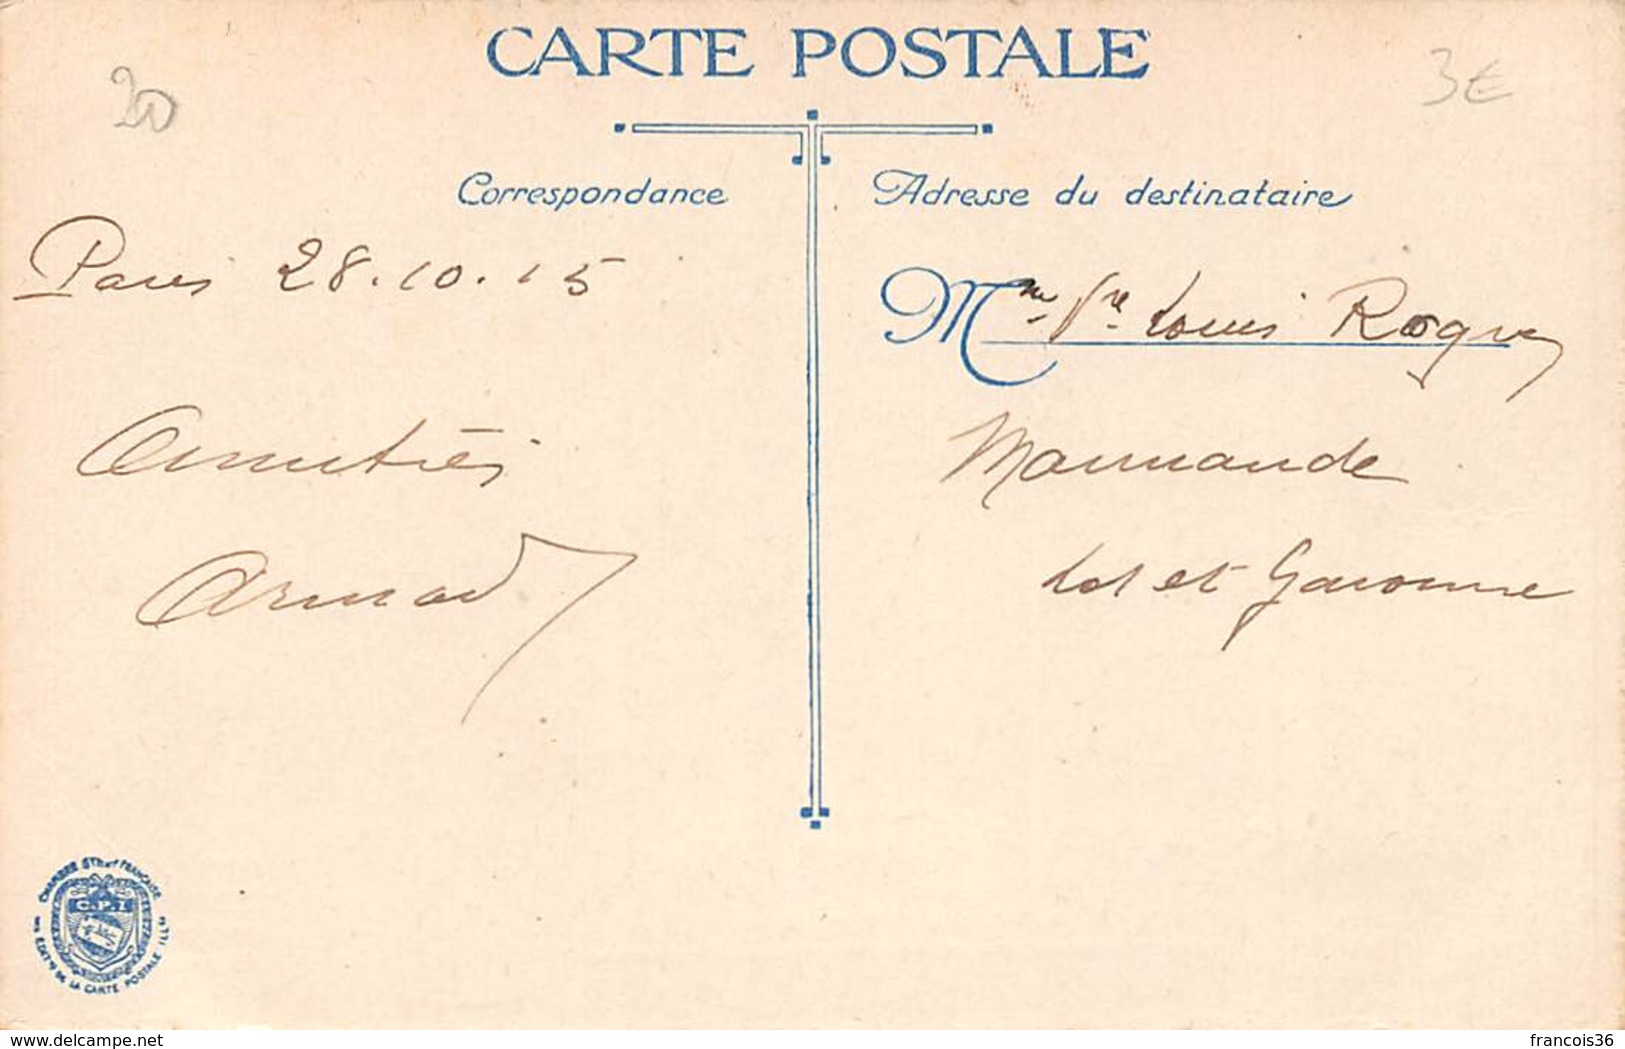 CARTE POSTALE
20
3€
Correspondance
Adresse du destinataire
Paris 28.10.15
Mme Vve Louis Roques
Amitiés
Marmande
Armand
Lot et Garonne
CHAMBRE SYND FRANÇAISE
C.P.I
DE LA CARTE POSTALE ILL
www.delcampe.net
francois36